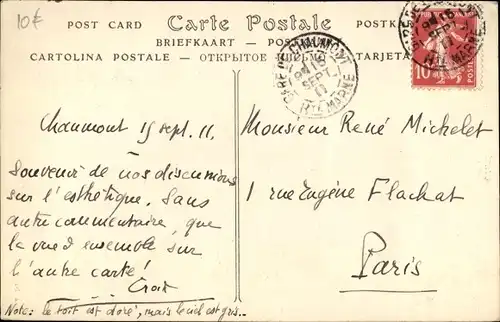 10€
POST CARD
Carte Postale
POSTK
BRIEFKAART - POS
CARTOLINA POSTALE - ОТКРЫТОЕ
TARJETA
GARE DE CHAUMONT
SEPT
11
Hte MARNE
10
POSTES
Chaumont 15 sept. 11.
Souvenir de nos discussions
sur l'esthétique. Sans
autre commentaire, que
la vue d'ensemble sur
l'autre carte!
Note: le toit est doré, mais le ciel est gris..
Monsieur René Michelet
1 rue Eugène Flachat
Paris